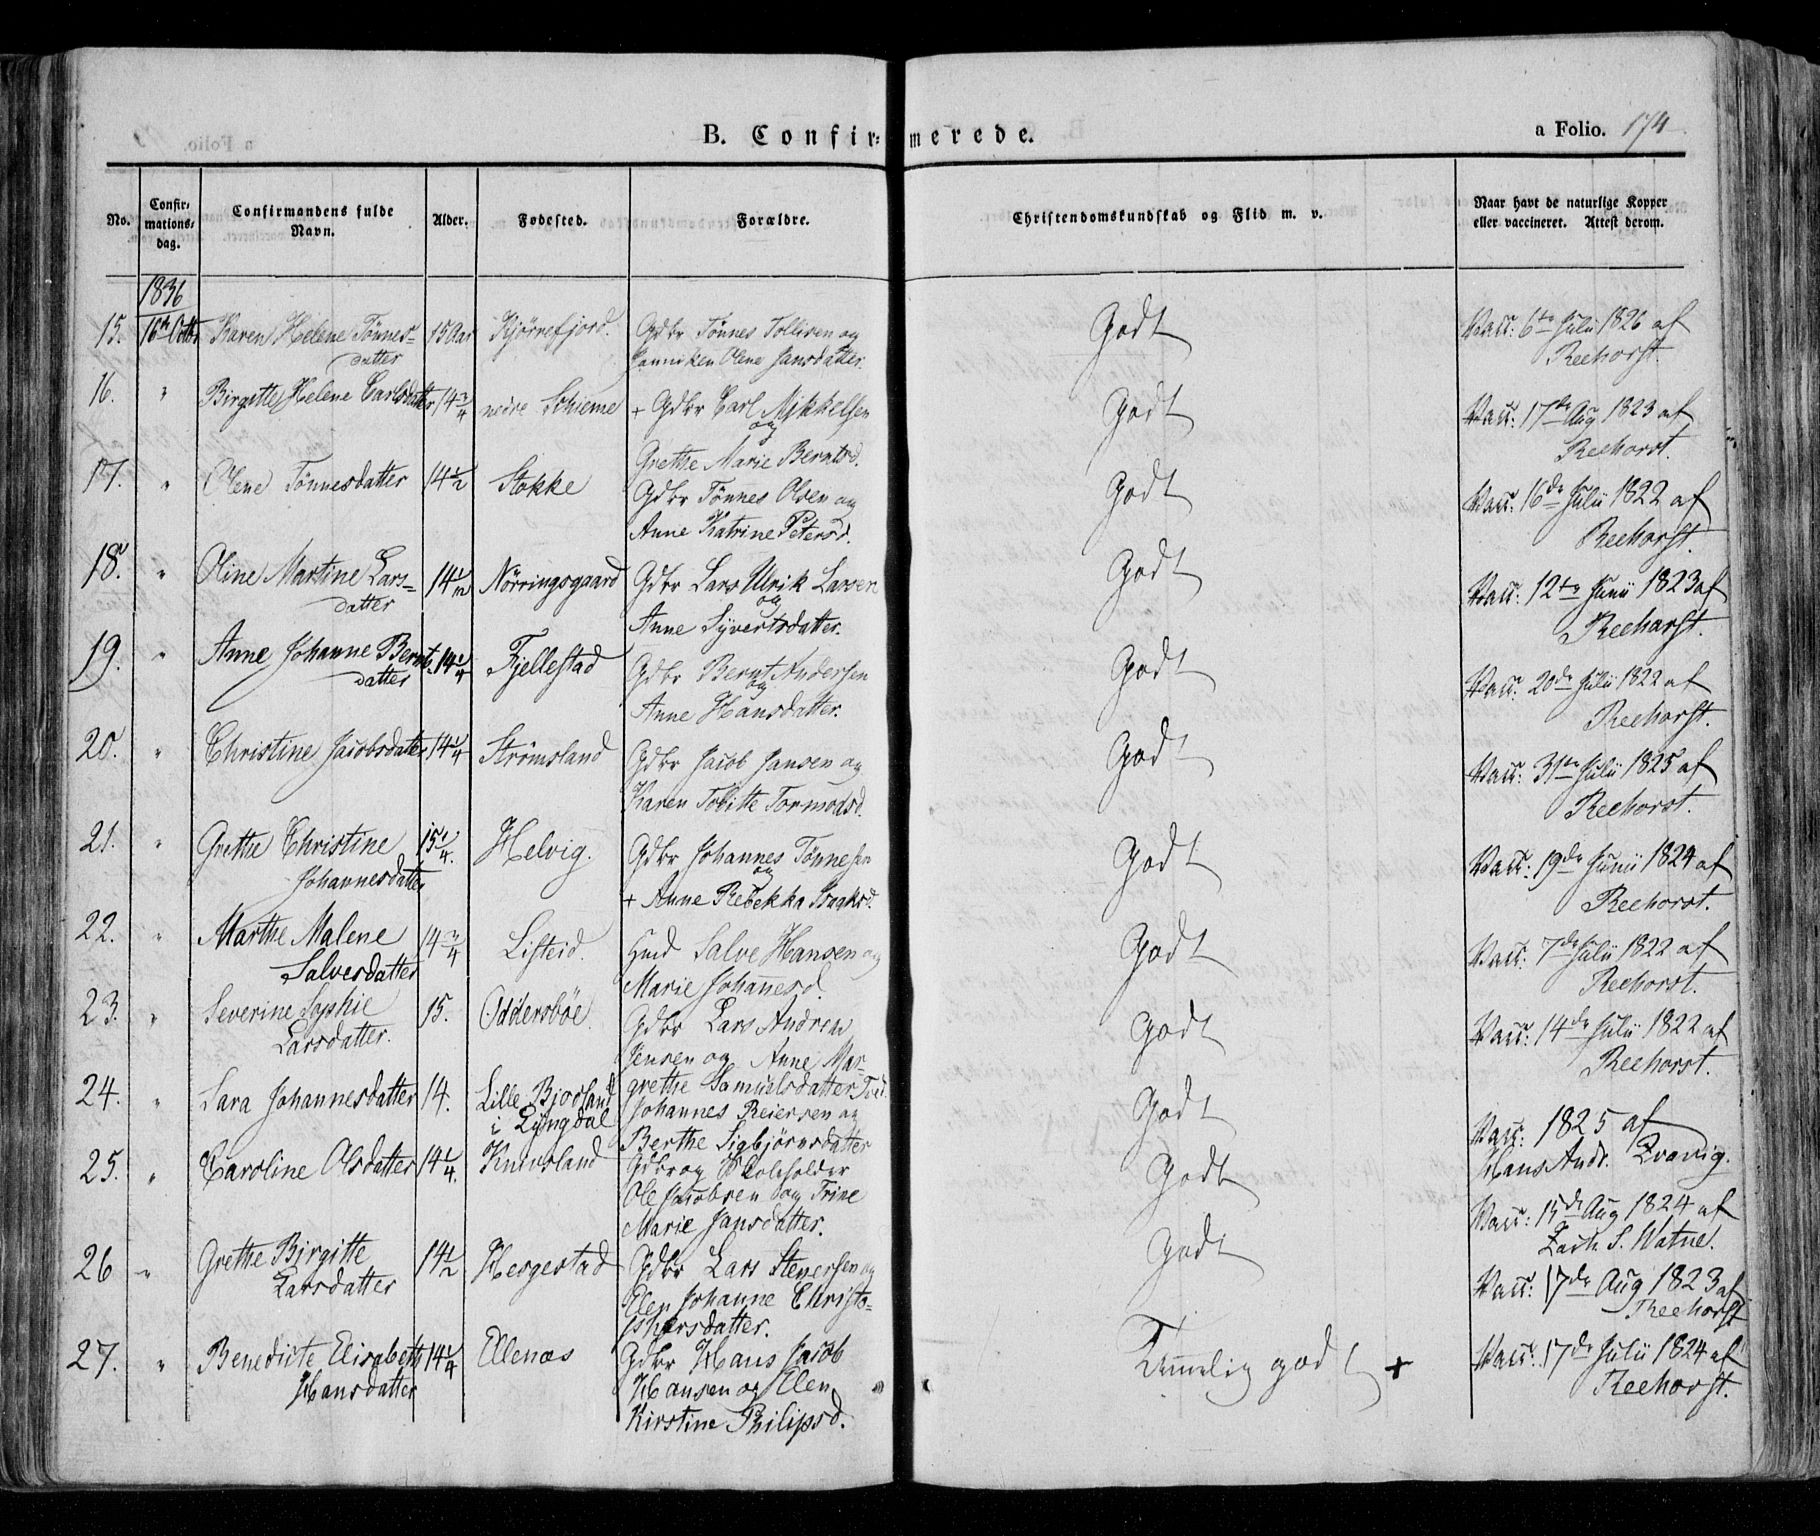 B. Confirmerede.
a Folio. 174
No.
Confir-
mations-
dag.
Confirmandens fulde
Navn.
Alder.
Fødested.
Forældre.
Christendomskundskab og Flid m. v.
Naar havt de naturlige Kopper
eller vaccineret. Attest derom.
1836
15. 16de Octbr Karen Helene Tönnes- 15 Aar Kjørrefjord. Gdbr Tönnes Tollisen og Godt Vacc: 6te Julii 1826 af
datter Janniken Olene Jansdatter. Reehorst.
16. " Birgitte Helene Carlsdatter 14 3/4 nedre Schieme + Gdbr Carl Mikkelsen Godt Vacc: 17de Aug 1823 af
og Reehorst.
Grethe Marie Berntsd.
17. " Olene Tönnesdatter 14 1/2 Stokke Gdbr Tönnes Olsen og Godt Vacc: 16de Julii 1822 af
Anne Katrine Petersd. Reehorst.
18. " Oline Martine Lars- 14 1/2 Nörringsgaard Gdbr Lars Ulrik Larsen Godt Vacc: 12te Junii 1823 af
datter og Reehorst.
Anne Syvertsdatter.
19. " Anne Johanne Bernts- 14 1/4 Fjellestad Gdbr Bernt Andersen Godt Vacc: 20de Julii 1822 af
datter og Reehorst.
Anne Hansdatter.
20. " Christine Jacobsdatter 14 1/4 Strømsland Gdbr Jacob Jansen og Godt Vacc: 31te Julii 1825 af
Karen Tobitte Tormodsd. Reehorst.
21. " Grethe Christine 15 1/4. Helvig. Gdbr Johannes Tönnesen Godt Vacc: 19de Junii 1824 af
Johannesdatter og Reehorst.
+ Anne Rebekka Isaaksd.
22. " Marthe Malene 14 3/4 Listeid. Hmd Salve Hansen og Godt Vacc: 7de Julii 1822 af
Salvesdatter Marie Johannesd. Reehorst.
23. " Severine Sophie 15. Oddersböe Gdbr Lars Andreas Godt Vacc: 14de Julii 1822 af
Larsdatter. Jensen og Anne Mar- Reehorst.
grethe Samuelsdatter
24. " Sara Johannesdatter 14. Lille Bjorland Johannes Reiersen og Godt Vacc: 1825 af
i Lyngdal Berthe Sigbjørnsdatter Hans Andr.
25. " Caroline Olsdatter 14 1/4. Knivsland Gdbr og Skoleholder Godt Vacc: 15de Aug 1824 af
Ole Jacobsen og Trine Zach. S. Watne.
Marie Jansdatter.
26 " Grethe Birgitte 14 1/2 Hesgestad Gdbr Lars Stenersen og Godt Vacc: 17de Aug 1823 af
Larsdatter Elen Johanne Christo- Reehorst
phersdatter.
27. " Benedicte Elisabeth 14 1/4 Ellenæs Gdbr Hans Jacob Temmelig godt + Vacc: 17de Julii 1824 af
Hansdatter Hansen og Elen Reehorst.
Kirstine Philipsd.